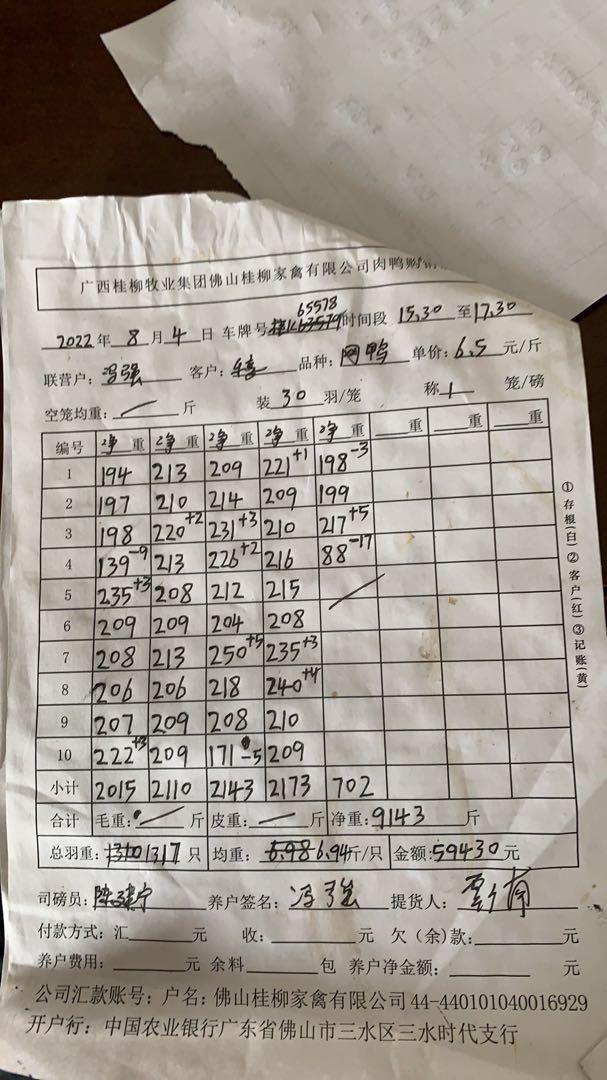 广西桂柳牧业集团佛山桂柳家禽有限公司肉鸭购销
65578
2022年 8月 4日 车牌号 时间段 15.30 至17.30
联营户: 冯强 客户: 品种: 网鸭 单价: 6.5 元/斤
空笼均重: 斤 装 30 羽/笼 称 1 笼/磅
编号 净重 净重 净重 净重 净重 重 重 重
1 194 213 209 221+1 198-3
2 197 210 214 209 199
3 198 220+2 231+3 210 217+5
4 139-9 213 226+2 216 88-17
5 235+3 208 212 215
6 209 209 204 208
7 208 213 250+5 235+3
8 206 206 218 240+4
9 207 209 208 210
10 222+3 209 171-5 209
小计 2015 2110 2143 2173 702
合计 毛重: 斤 皮重: 斤 净重: 9143 斤
总羽重: 1310 1317 只 均重: 6.98 6.94斤/只 金额: 59430 元
司磅员: 养户签名: 冯强 提货人:
付款方式: 汇 元 收: 元 欠(余)款: 元
养户费用: 元 余料 包 养户净金额: 元
公司汇款账号: 户名: 佛山桂柳家禽有限公司44-440101040016929
开户行: 中国农业银行广东省佛山市三水区三水时代支行
①存根(白)②客户(红)③记账(黄)